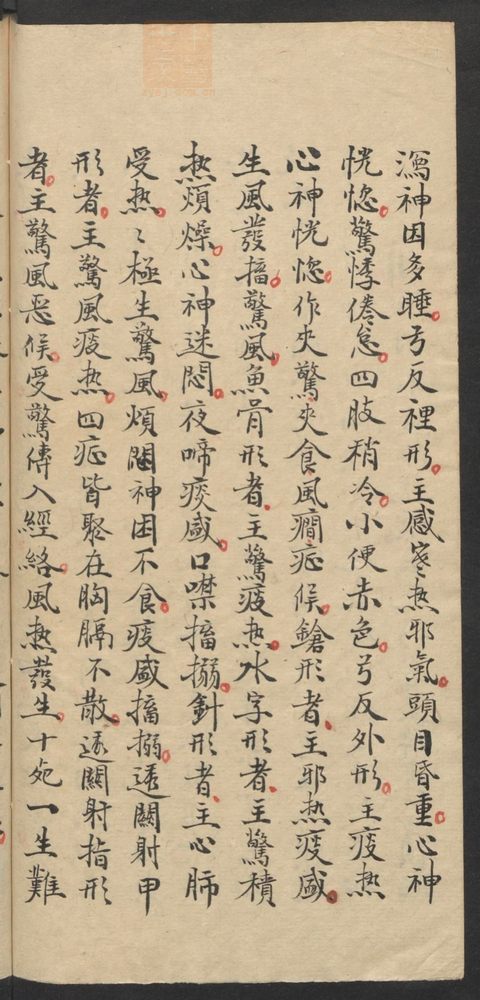 瀉神因多睡弓反裡形主感寒热邪氣頭目昏重心神
恍惚驚悸倦怠四肢稍冷小便赤色弓反外形主痰热
心神恍惚作夾驚夾食風癎症候鎗形者主邪热痰盛
生風發搐驚風魚骨形者主驚痰热水字形者主驚積
热煩燥心神迷悶夜啼痰盛口噤搐搦針形者主心肺
受热〻極生驚風煩悶神困不食痰盛搐搦透關射甲
形者主驚風痰热四症皆聚在胸膈不散透關射指形
者主驚風恶候受驚傳入經絡風热發生十死一生難